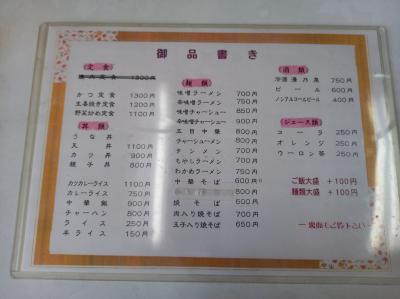 御品書き
定食
焼肉定食 1300円
かつ定食 1300円
生姜焼き定食 1200円
野菜炒め定食 1100円
丼類
うな丼
天丼 1100円
カツ丼 900円
親子丼 800円
カツカレーライス 1150円
カレーライス 750円
中華飯 900円
チャーハン 800円
ライス 250円
半ライス 150円
麺類
味噌ラーメン 700円
辛味噌ラーメン 750円
味噌チャーシュー 850円
辛味噌チャーシュー 900円
五目中華 800円
チャーシューメン 800円
タンメン 700円
もやしラーメン 700円
わかめラーメン 750円
中華そば 600円
焼そば 600円
肉入り焼そば 700円
玉子入り焼そば 650円
酒類
冷酒 750円
ビール 600円
ノンアルコールビール 400円
ジュース類
コーラ 250円
オレンジ 250円
ウーロン茶 250円
ご飯大盛 +100円
麺類大盛 +100円